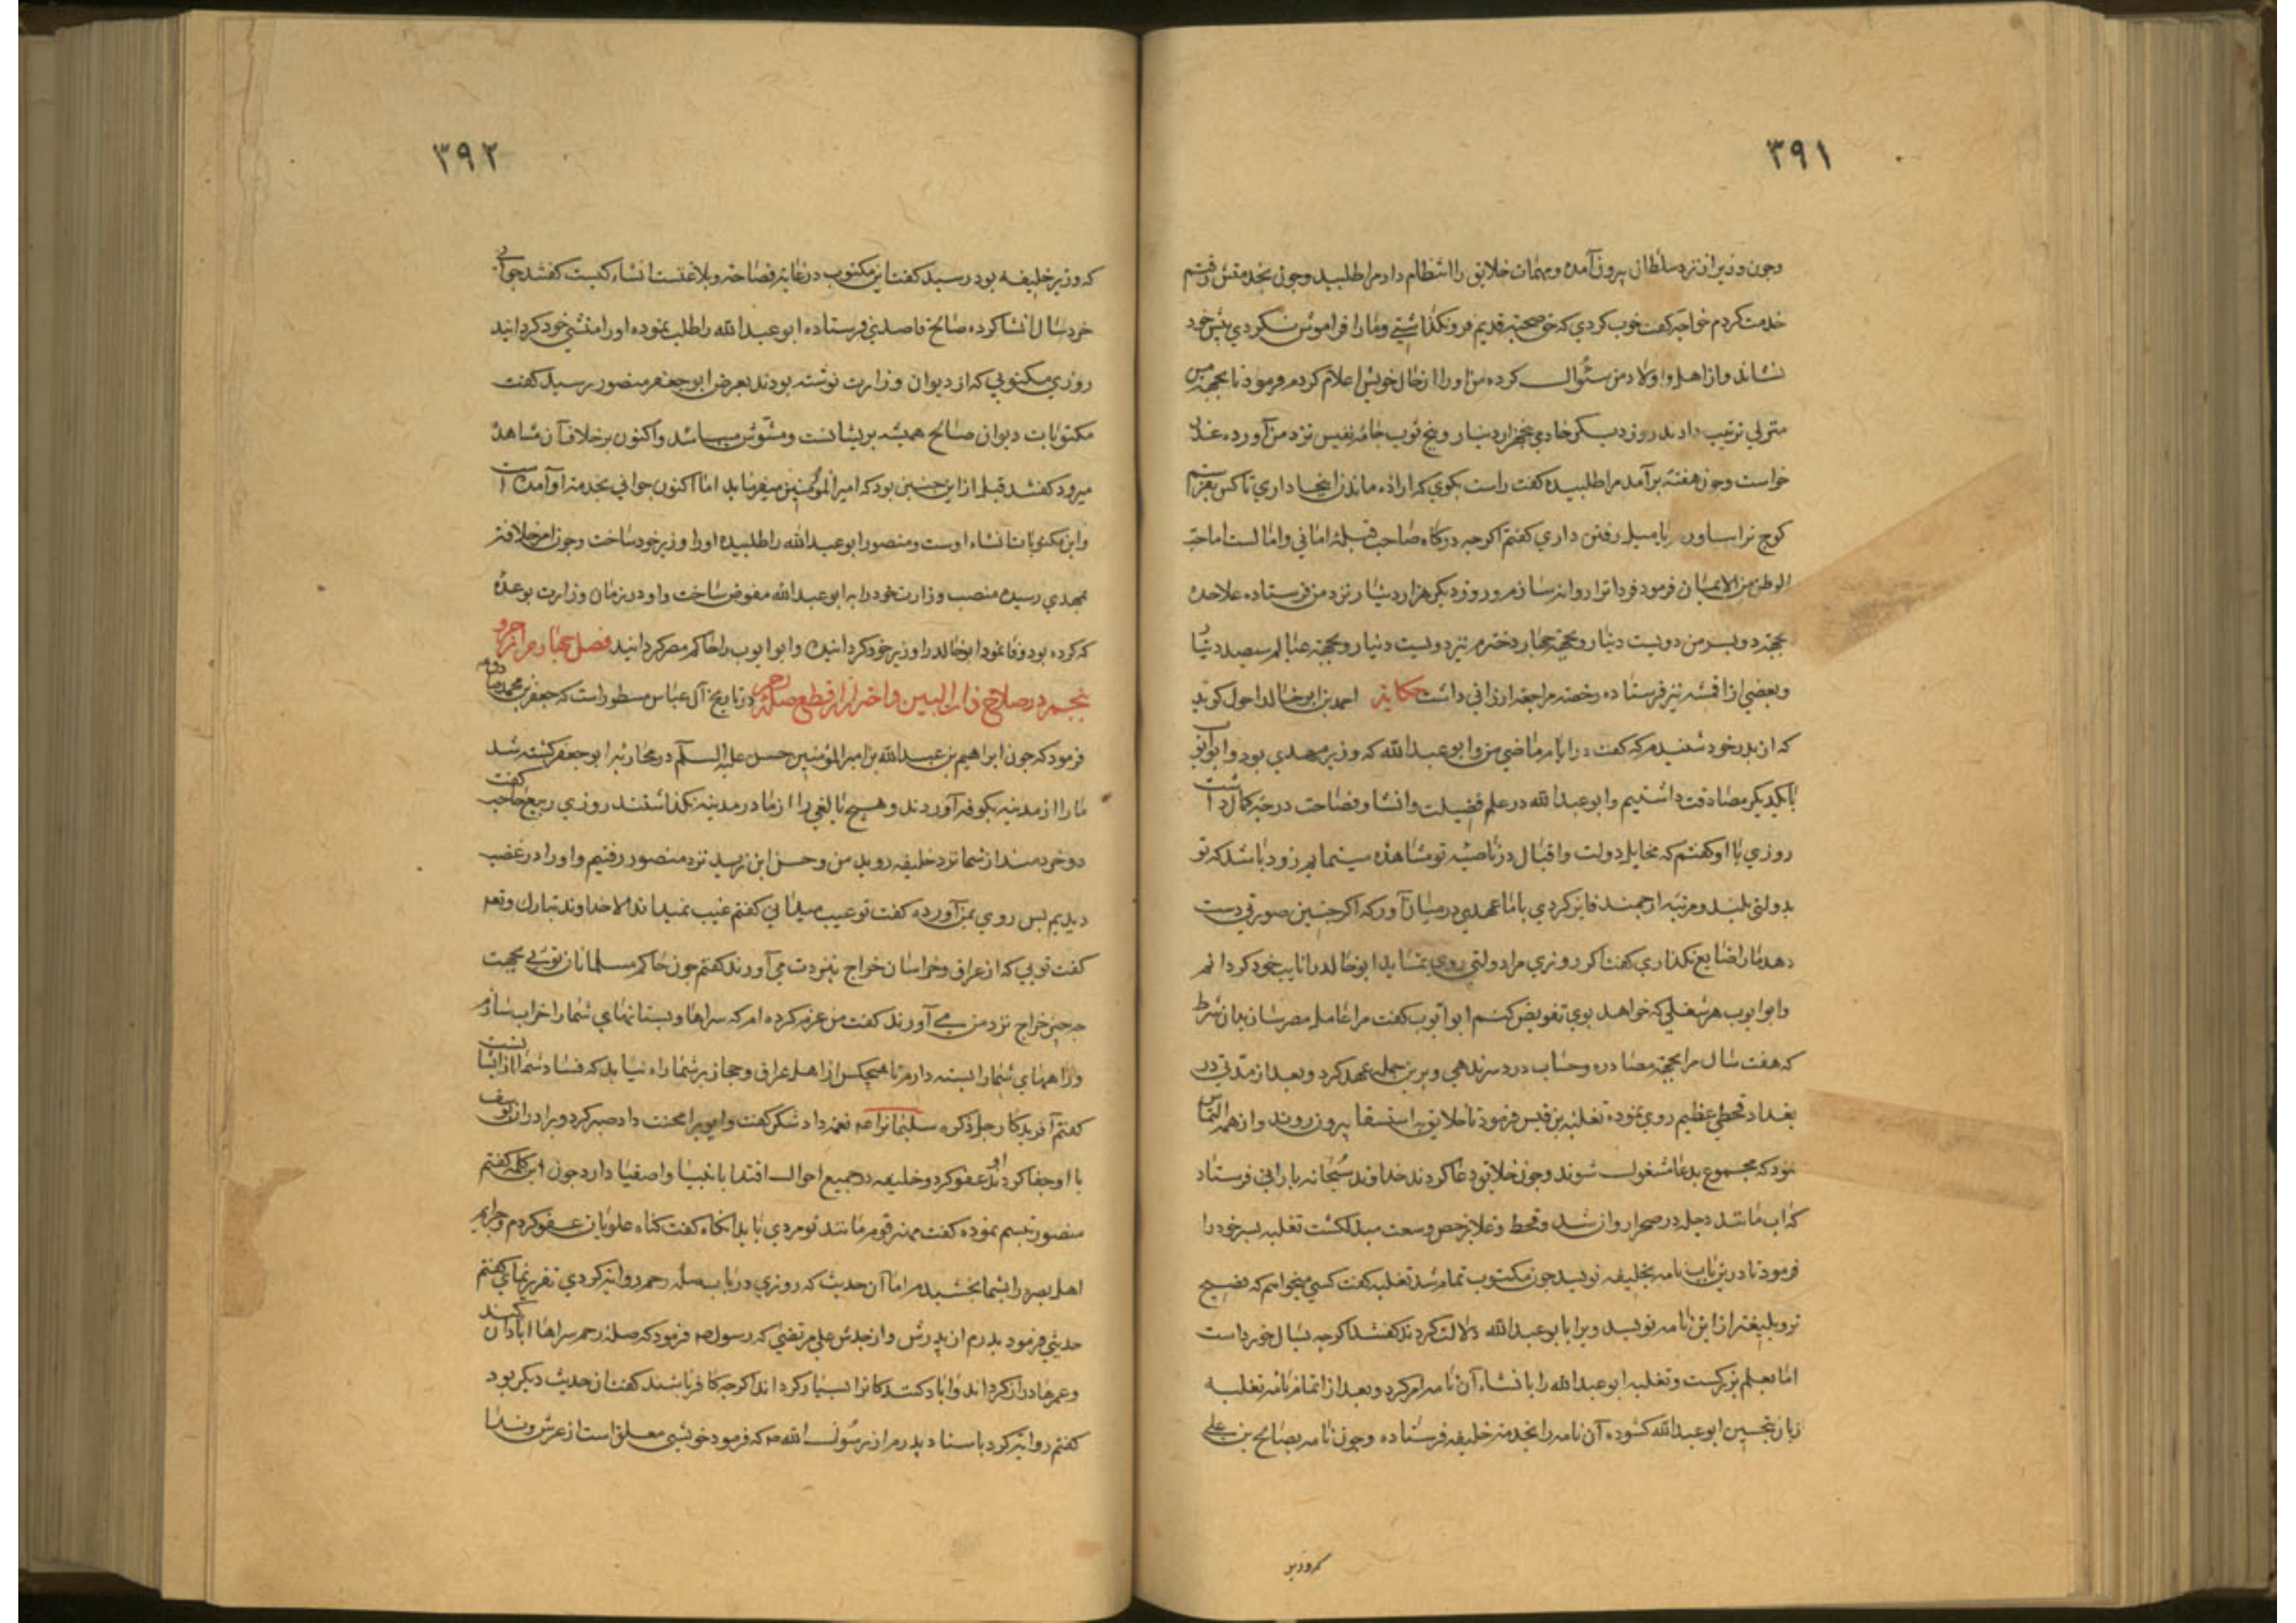 ۳۹۱
وچون وزیر از نزد سلطان بیرون آمده ومهمات خلایق را انتظام داد مرا طلبید وچون بخدمتش رفتم
خدمت کردم خواجه گفت خوب کردی که حق صحبت قدیم فرو نکذاشتی ومارا فراموش نکردی پیش خود
نشاند واز اهل واولاد من سئوال کرده من اورا از حال خویش اعلام کردم فرمود تا بجهة من
منزلی ترتیب دادند روز دیکر خادمی پنجهزار دینار وپنج ثوب جامه نفیس نزد من آورده عذر
خواست وچون هفته برآمد مرا طلبیده گفت راست بکوی که اراده ماندن اینجا داری تا کس بفرستم
کوچ ترا بیاورد یا میل رفتن داری گفتم اکرچه درکاه صاحب قبله امانی وآمالست اما حب
الوطن من الایمان فرمود فردا ترا روانه سازم وروز دیکر هزار دینار نزد من فرستاده علاحده
بجهة دو پسر من دویست دینار وبجهة چهار دخترم نیز دویست دینار وبجهة عیالم سیصد دینار
وبعضی از اقمشه نیز فرستاده رخصت مراجعت ارزانی داشت حکایت احمد بن ابو خالد احول کوید
که از پدر خود شنیدم که گفت در ایام ماضی من وابو عبدالله که وزیر مهدی بود وابوایوب
با یکدیکر مصادقت داشتیم وابو عبدالله در علم فضیلت وانشا وفصاحت درجه کمال داشت
روزی با او گفتم که مخایل دولت واقبال در ناصیه تو مشاهده مینمایم زود باشد که تو
بدولتی بلند ومرتبه ارجمند فایز کردی با ما عهدی در میان آور که اکر چنین صورتی دست
دهد مارا ضایع نکذاری گفت اکر روزی مرا دولتی روی نماید ابو خالد را نایب خود کردانم
وابو ایوب هر شغلی که خواهد بوی تفویض کنم ابو ایوب گفت مرا عامل مصر ساز بدان شرط
که هفت سال مرا بجهة مصادره وحساب درد سر ندهی وبرین جمله عهد کرد وبعد از مدتی در
بغداد قحطی عظیم روی نموده تغلبة بن قیس فرمود تا خلایق به استسقا بیرون روند واز همه التماس
نمود که مجموع بدعا مشغول شوند وچون خلایق دعا کردند خداوند سبحانه بارانی فرستاد
که آب مانند دجله در صحرا روان شد وقحط وغلا برخص وسعت مبدل کشت تغلبه پسر خود را
فرمود تا درین باب نامه بخلیفه نویسد چون مکتوب تمام شد تغلبه گفت کسی میخواهم که فصیح
تر وبلیغتر ازین نامه نویسد ویرا بابو عبدالله دلالت کردند گفتند اکرچه بسال خورداست
اما بعلم بزرکست وتغلبه ابو عبدالله را بانشاء آن نامه امر کرد وبعد از اتمام نامه تغلبه
زبان تحسین ابو عبدالله کشوده آن نامه را بخدمت خلیفه فرستاده وچون نامه بصالح بن علی
۳۹۲
که وزیر خلیفه بود رسید گفت این مکتوب در غایت فصاحت وبلاغتست انشاء کیست گفتند جوانی
خرد سال انشا کرده صالح قاصدی فرستاده ابو عبدالله را طلب نموده اورا منشی خود کردانید
روزی مکتوبی که از دیوان وزارت نوشته بودند بعرض ابو جعفر منصور رسید گفت
مکتوبات دیوان صالح همیشه پریشانست ومشوش میباشد واکنون برخلاف آن مشاهده
میرود گفتند قبل ازین چنین بود که امیر المؤمنین میفرماید اما اکنون جوانی بخدمت او آمده است
واین مکتوبات انشاء اوست ومنصور ابو عبدالله را طلبیده اورا وزیر خود ساخت وچون امر خلافت
بمهدی رسید منصب وزارت خود را به ابو عبدالله مفوض ساخت واو در زمان وزارت بوعده
که کرده بود وفا نمود ابو خالد را وزیر خود کردانید وابو ایوب را حاکم مصر کردانید فصل چهارم از جزو
پنجم در صلاح ذات البین واحتراز از قطع صله رحم در تاریخ آل عباس مسطور است که جعفر بن محمد صادق
فرمود که چون ابراهیم بن عبدالله بن امیر المؤمنین حسن علیه السلم در محاربه ابو جعفر کشته شد
مارا از مدینه بکوفه آوردند وهیچ بالغی را از ما در مدینه نکذاشتند روزی ربیع حاجب گفت
دو خردمند از شما نزد خلیفه روید من وحسن ابن زید نزد منصور رفتیم واورا در غضب
دیدیم پس روی بمن آورده گفت تو غیب میدانی گفتم غیب نمیداند الا خداوند تبارک وتعه
گفت تویی که از عراق وخراسان خراج بنزدت می آورند گفتم چون حاکم مسلمانان تویی بجهت
چه چیز خراج نزد من می آورند گفت من عزم کرده ام که سراها وبستانهای شما را خراب سازم
وراههای شما را بسته دارم تا هیچکس از اهل عراق وحجاز بر شما راه نیابد که فساد شما از ایشانست
گفتم آفریدکار جل ذکره سلیمانرا عم نعمت داد شکر گفت وایوبرا محنت داد صبر کرد وبرادران یوسف
با او جفا کردند او عفو کرد وخلیفه در جمیع احوال اقتدا بانبیا واصفیا دارد چون این کلمه گفتم
منصور تبسم نموده گفت مهتر قوم مانند تو مردی باید آنکاه گفت کناه علویان عفو کردم وجرایم
اهل بصره را بشما بخشیدم اما آن حدیث که روزی در باب صله رحم روایت کردی تقریر نمای گفتم
حدیثی فرمود پدرم از پدرش واز جدش علی مرتضی که رسول صم فرمود که صله رحم سراها آبادان کند
وعمرها دراز کرداند وآباد کنند کانرا بسیار کرداند اکرچه کافر باشند گفت آن حدیث دیکر بود
گفتم روایت کرد باسناد پدرم از رسول الله صم که فرمود خویشی معلق است از عرش وندا